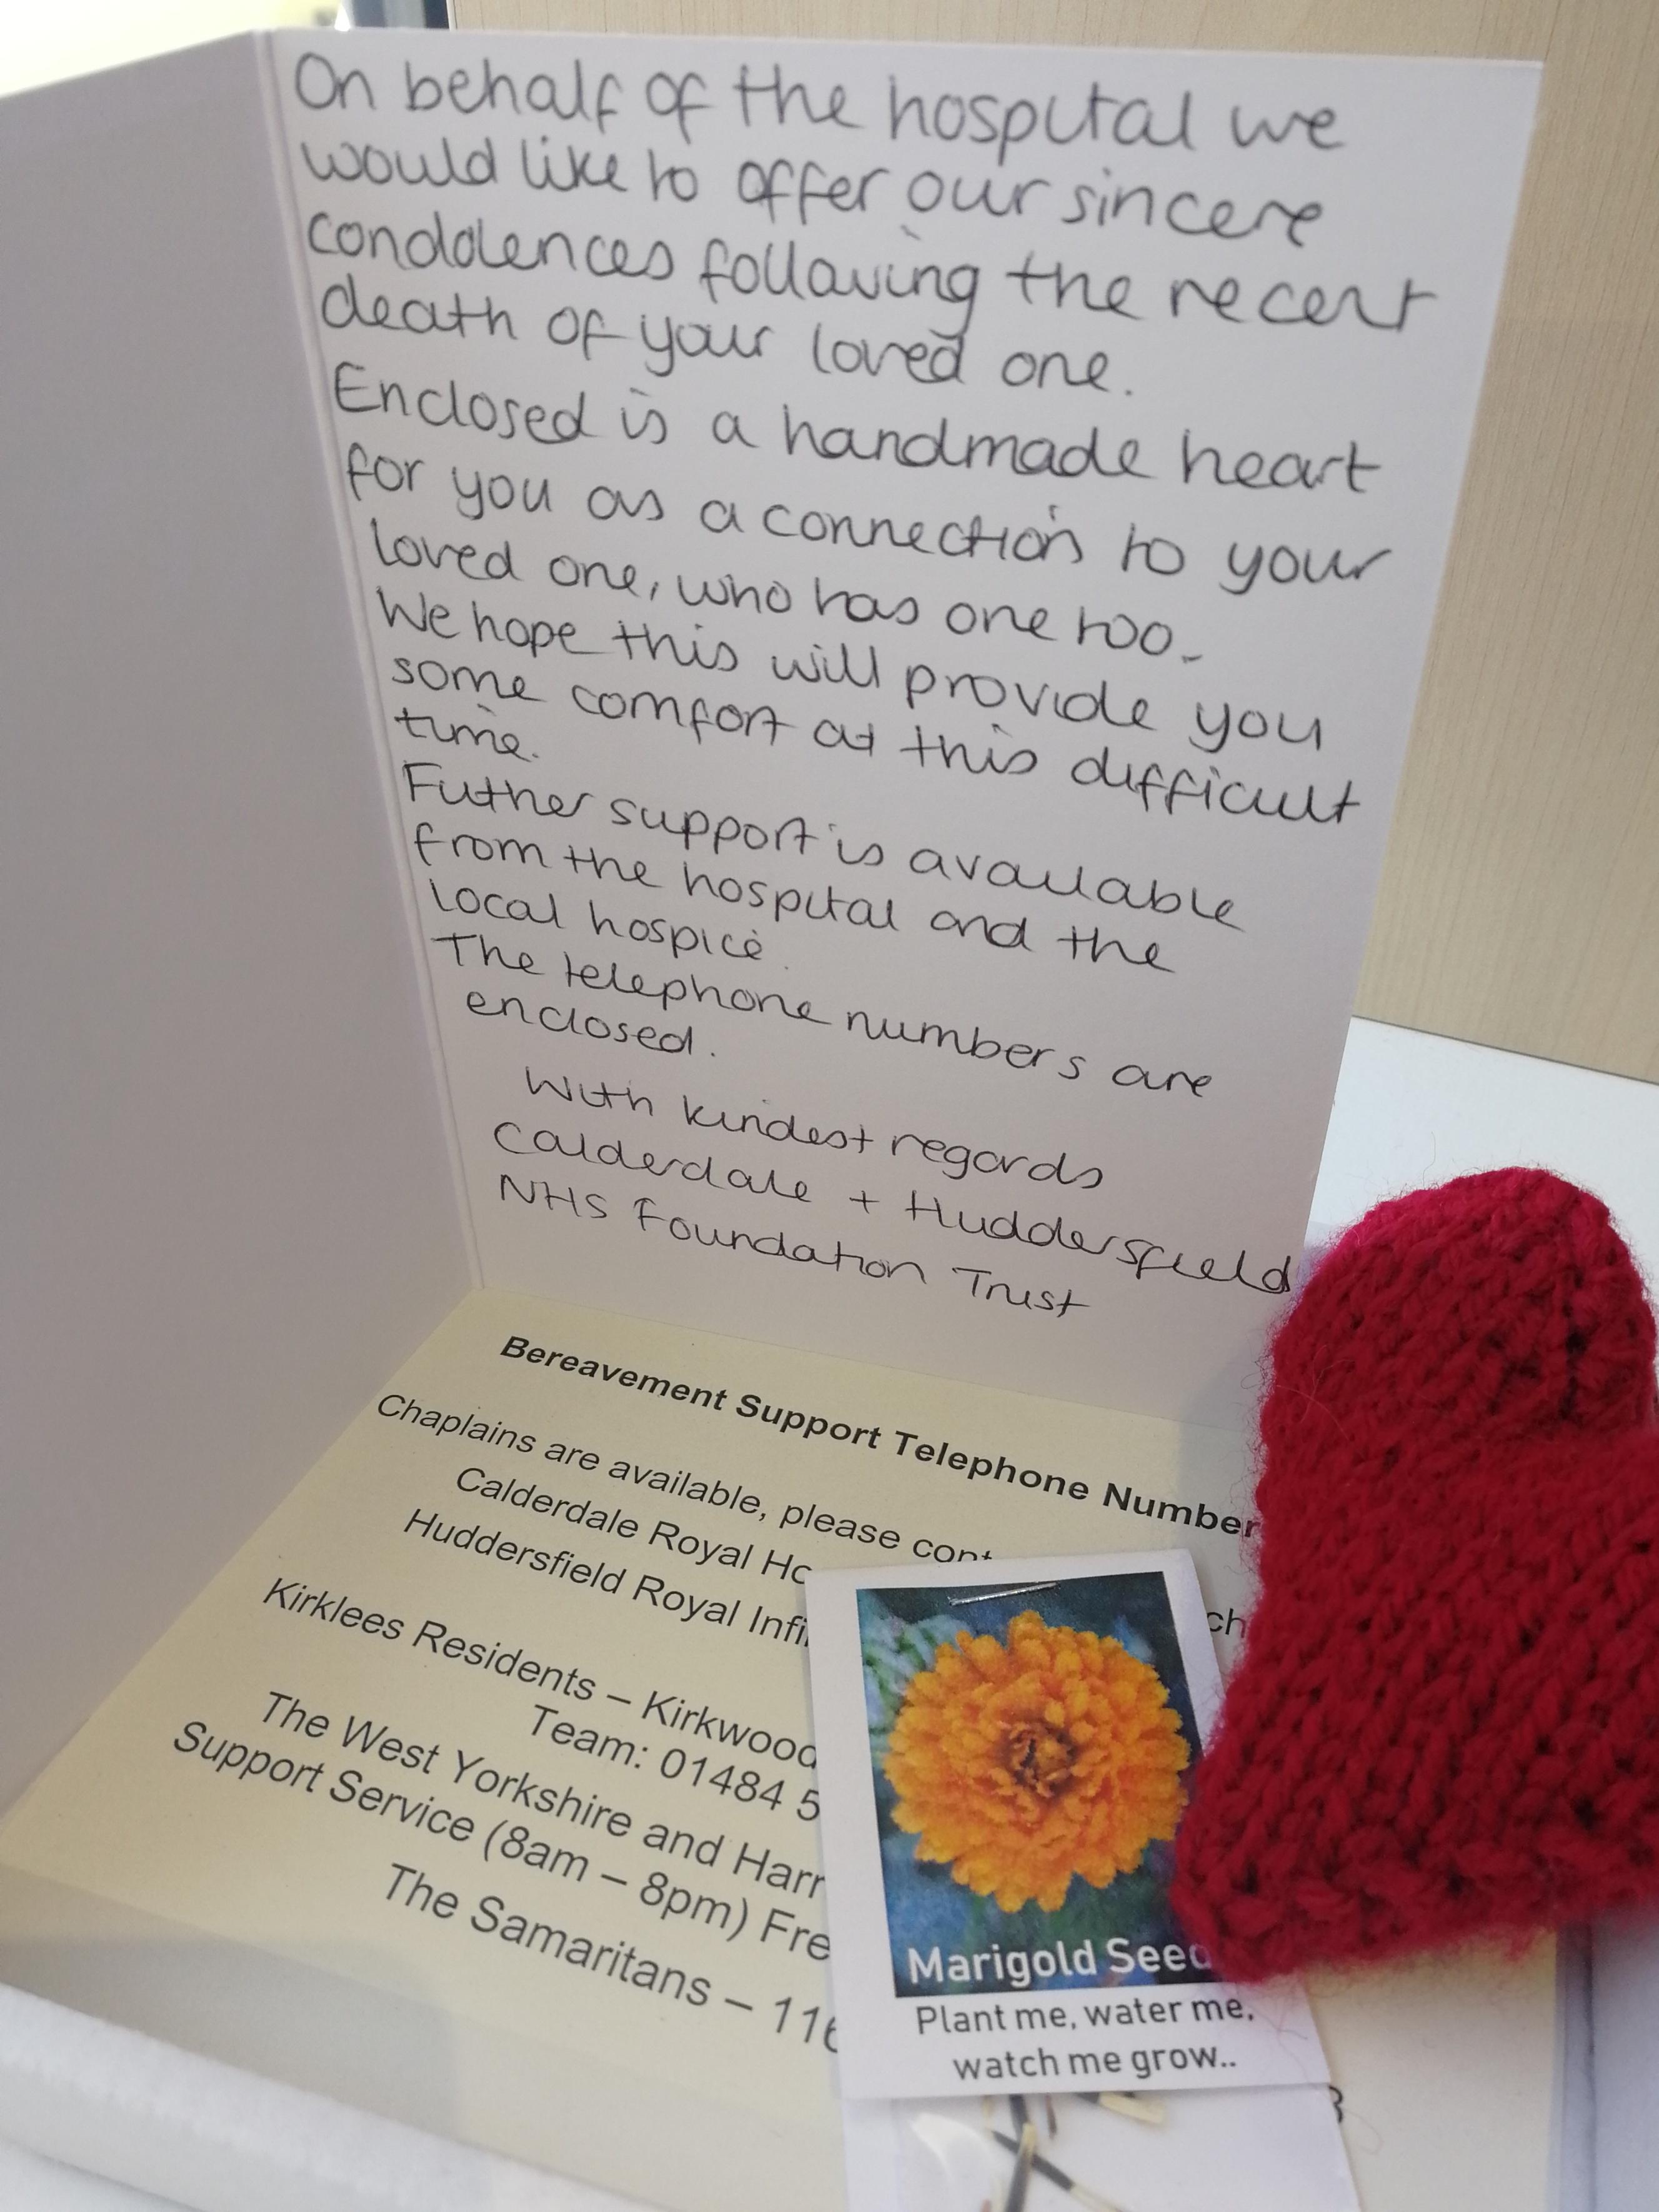 On behalf of the hospital we
would like to offer our sincere
condolences following the recent
death of your loved one.
Enclosed is a handmade heart
for you as a connection to your
loved one, who has one too.
We hope this will provide you
some comfort at this difficult
time.
Futher support is available
from the hospital and the
local hospice.
The telephone numbers are
enclosed.
With kindest regards
Calderdale + Huddersfield
NHS Foundation Trust
Bereavement Support Telephone Number
Chaplains are available, please
Calderdale Royal
Huddersfield Royal
Kirklees Residents – Kirkwood
Team: 01484 5
The West Yorkshire and
Support Service (8am – 8pm)
The Samaritans – 116
Marigold Seed
Plant me, water me,
watch me grow..